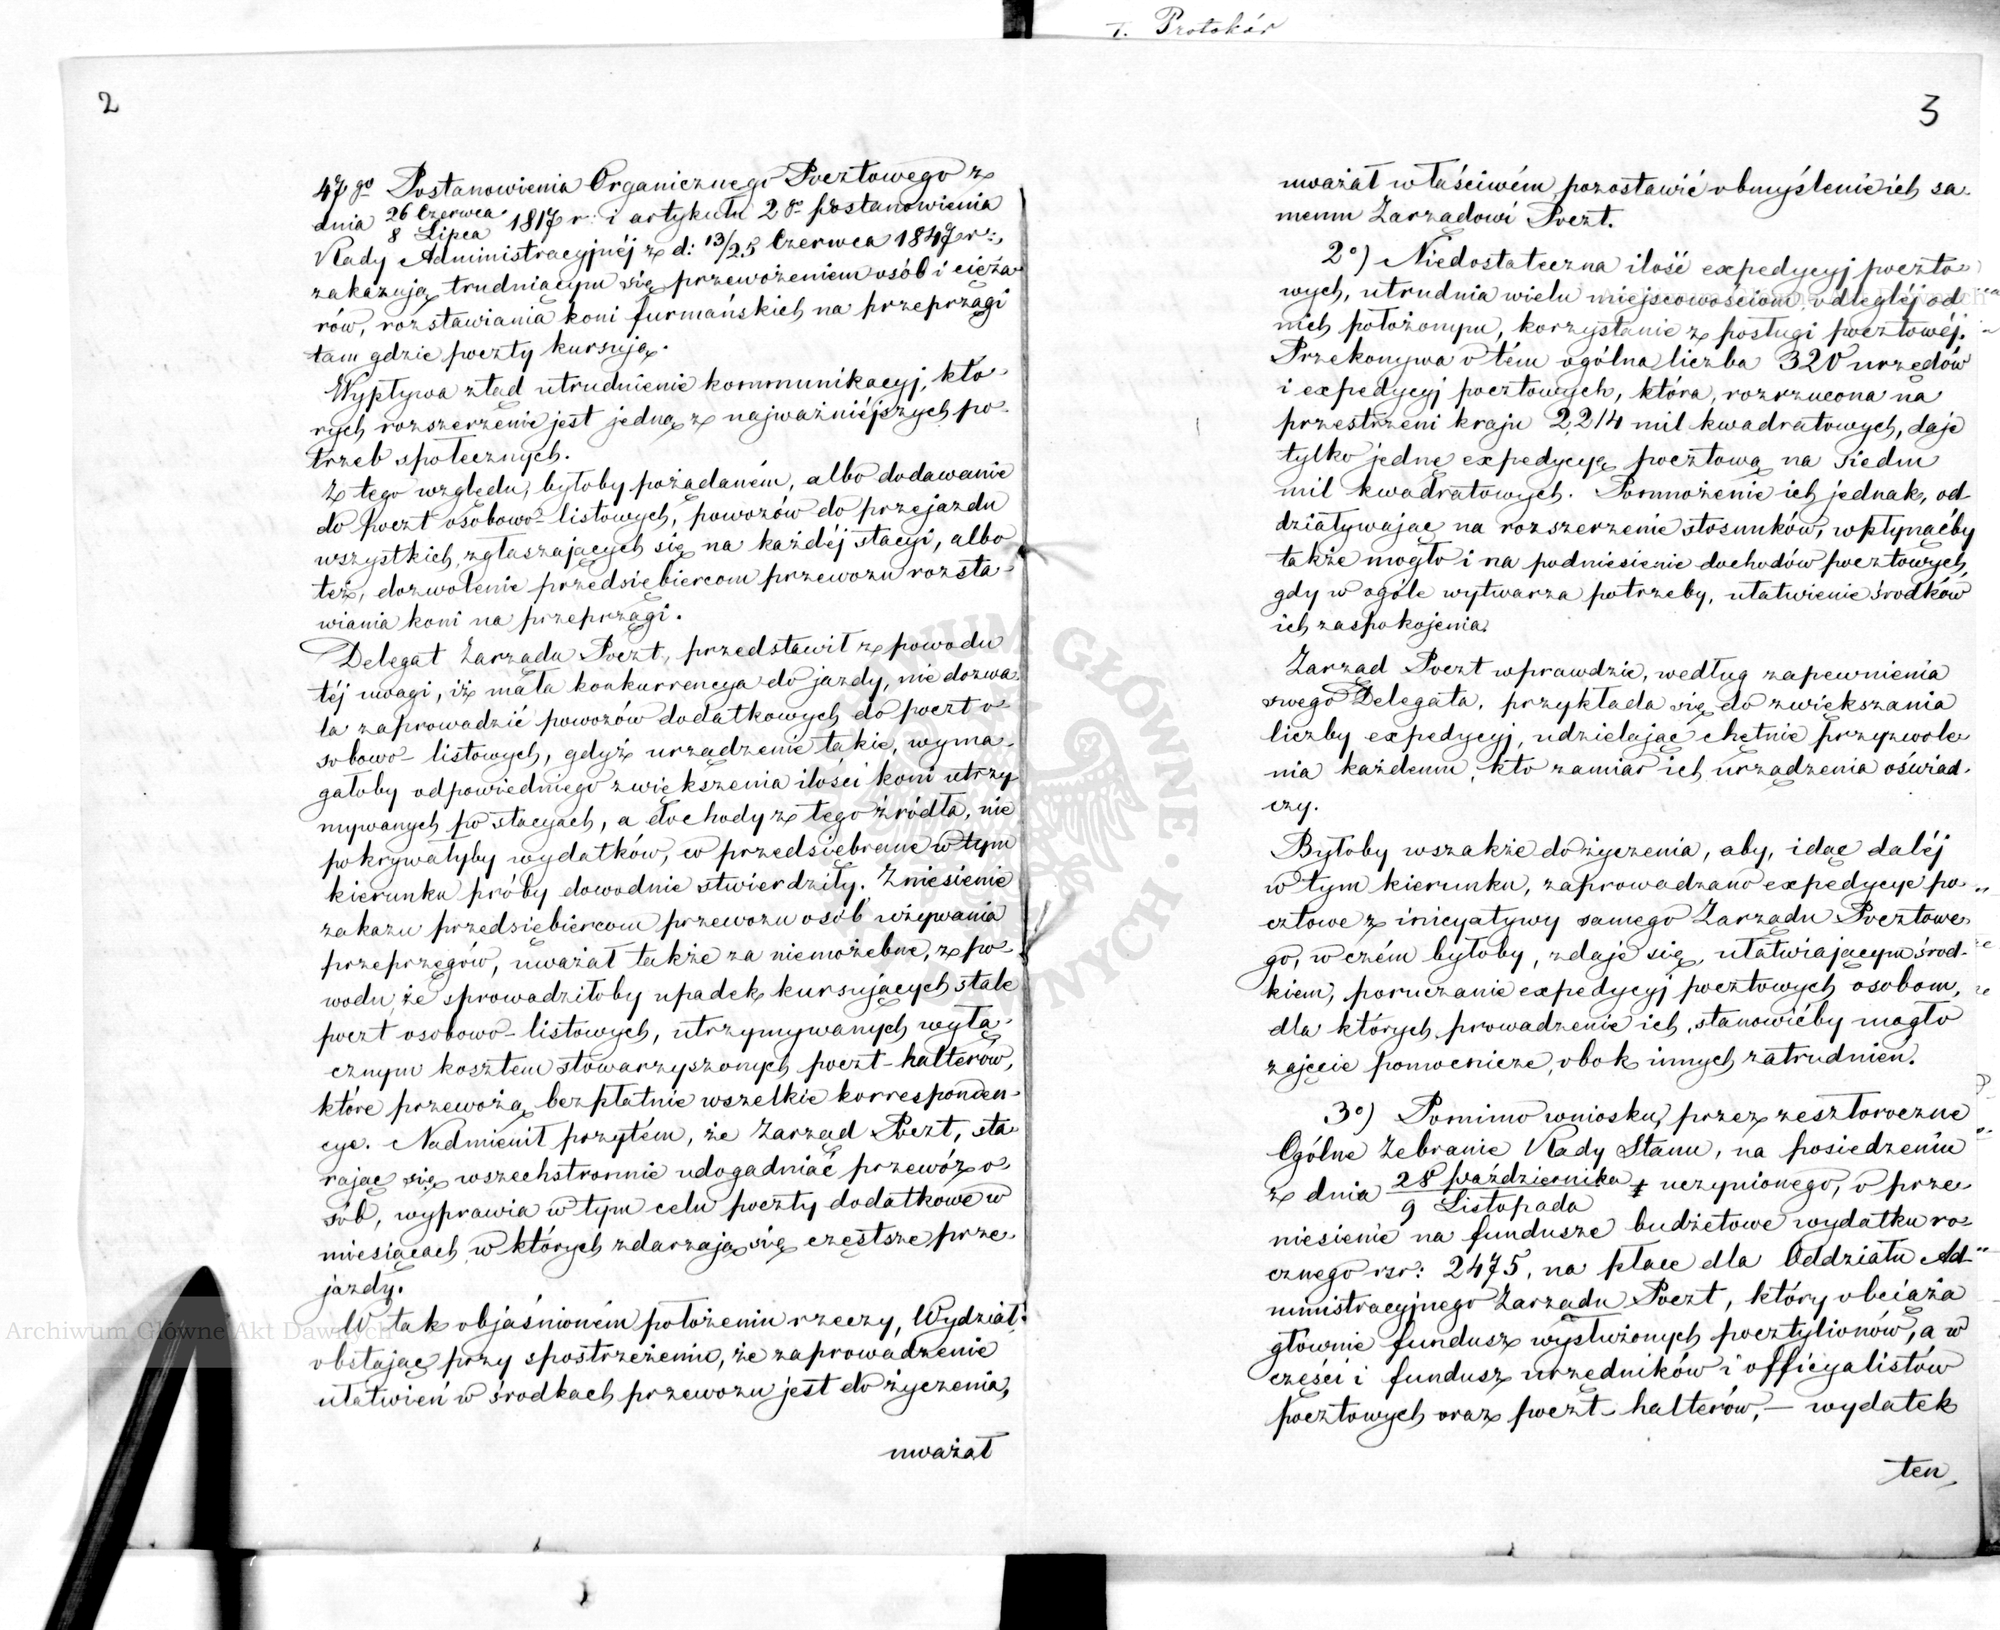 T. Protokór
2
47go Postanowienia Organicznego Pocztowego z
dnia 26 Czerwca / 8 Lipca 1817 r: i artykułu 2o postanowienia
Rady Administracyjnéj z d: 13/25 Czerwca 1847 r:,
zakazują trudniącym się przewożeniem osób i cięża-
rów, rozstawiania koni furmańskich na przeprzągi
tam gdzie poczty kursują.
Wypływa ztąd utrudnienie kommunikacyj, któ-
rych rozszerzenie jest jedną z najważniéjszych po-
trzeb społecznych.
Z tego względu, byłoby pożądaném, albo dodawanie
do poczt osobowo-listowych, powozów do przejazdu
wszystkich zgłaszających się na każdéj stacyi, albo
też, dozwolenie przedsiębiercom przewozu rozsta-
wiania koni na przeprzągi.
Delegat Zarządu Poczt, przedstawił z powodu
téj uwagi, iż mała konkurrencya do jazdy, nie dozwa-
la zaprowadzić powozów dodatkowych do poczt o-
sobowo-listowych, gdyż urządzenie takie, wyma-
gałoby odpowiedniego zwiększenia ilości koni utrzy-
mywanych po stacyach, a dochody z tego źródła, nie
pokrywałyby wydatków, co przedsiębrane w tym
kierunku próby dowodnie stwierdziły. Zniesienie
zakazu przedsiębiercom przewozu osób używania
przeprzęgów, uważał także za niemożebne, z po-
wodu, że sprowadziłoby upadek kursujących stale
poczt osobowo-listowych, utrzymywanych wyłą-
cznym kosztem stowarzyszonych poczt-halterów,
które przewożą bezpłatnie wszelkie korresponden-
cye. Nadmienił przytém, że Zarząd Poczt, sta-
rając się wszechstronnie udogadniać przewóz o-
sób, wyprawia w tym celu poczty dodatkowe w
miesiącach w których zdarzają się częstsze prze-
jazdy.
W tak objaśnioném położeniu rzeczy, Wydział
obstając przy spostrzeżeniu, że zaprowadzenie
ułatwień w środkach przewozu jest do życzenia,
uważał
3
uważał właściwém pozostawić obmyślenie ich sa-
memu Zarządowi Poczt.
2o) Niedostateczna ilość expedycyj poczto-
wych, utrudnia wielu miejscowościom, odległéj od
nich położonym, korzystanie z posługi pocztowéj.
Przekonywa o tém ogólna liczba 320 urzędów
i expedycyj pocztowych, która, rozrzucona na
przestrzeni kraju 2214 mil kwadratowych, daje
tylko jednę expedycyą pocztową na siedm
mil kwadratowych. Pomnożenie ich jednak, od-
działywając na rozszerzenie stosunków, wpłynąćby
także mogło i na podniesienie dochodów pocztowych,
gdy w ogóle wytwarza potrzeby, ułatwienie środków
ich zaspokojenia.
Zarząd Poczt wprawdzie, według zapewnienia
swego Delegata, przykłada się do zwiększania
liczby expedycyj, udzielając chętnie przyzwole-
nia każdemu, kto zamiar ich urządzenia oświad-
czy.
Byłoby wszakże do życzenia, aby, idąc daléj
w tym kierunku, zaprowadzano expedycye po-
cztowe z inicyatywy samego Zarządu Pocztowe-
go, w czém byłoby, zdaje się, ułatwiającym środ-
kiem, poruczanie expedycyj pocztowych osobom,
dla których prowadzenie ich, stanowićby mogło
zajęcie pomocnicze, obok innych zatrudnień.
3o) Pomimo wniosku, przez zesztoroczne
Ogólne Zebranie Rady Stanu, na posiedzeniu
z dnia 28 października / 9 Listopada uczynionego, o prze-
niesienie na fundusze budżetowe wydatku ro-
cznego rsr: 2475, na płace dla Oddziału Ad-
ministracyjnego Zarządu Poczt, który obciąża
głównie fundusz wysłużonych pocztylionów, a w
części i fundusz urzędników i officyalistów
pocztowych oraz poczt-halterów, — wydatek
ten
Archiwum Główne Akt Dawnych